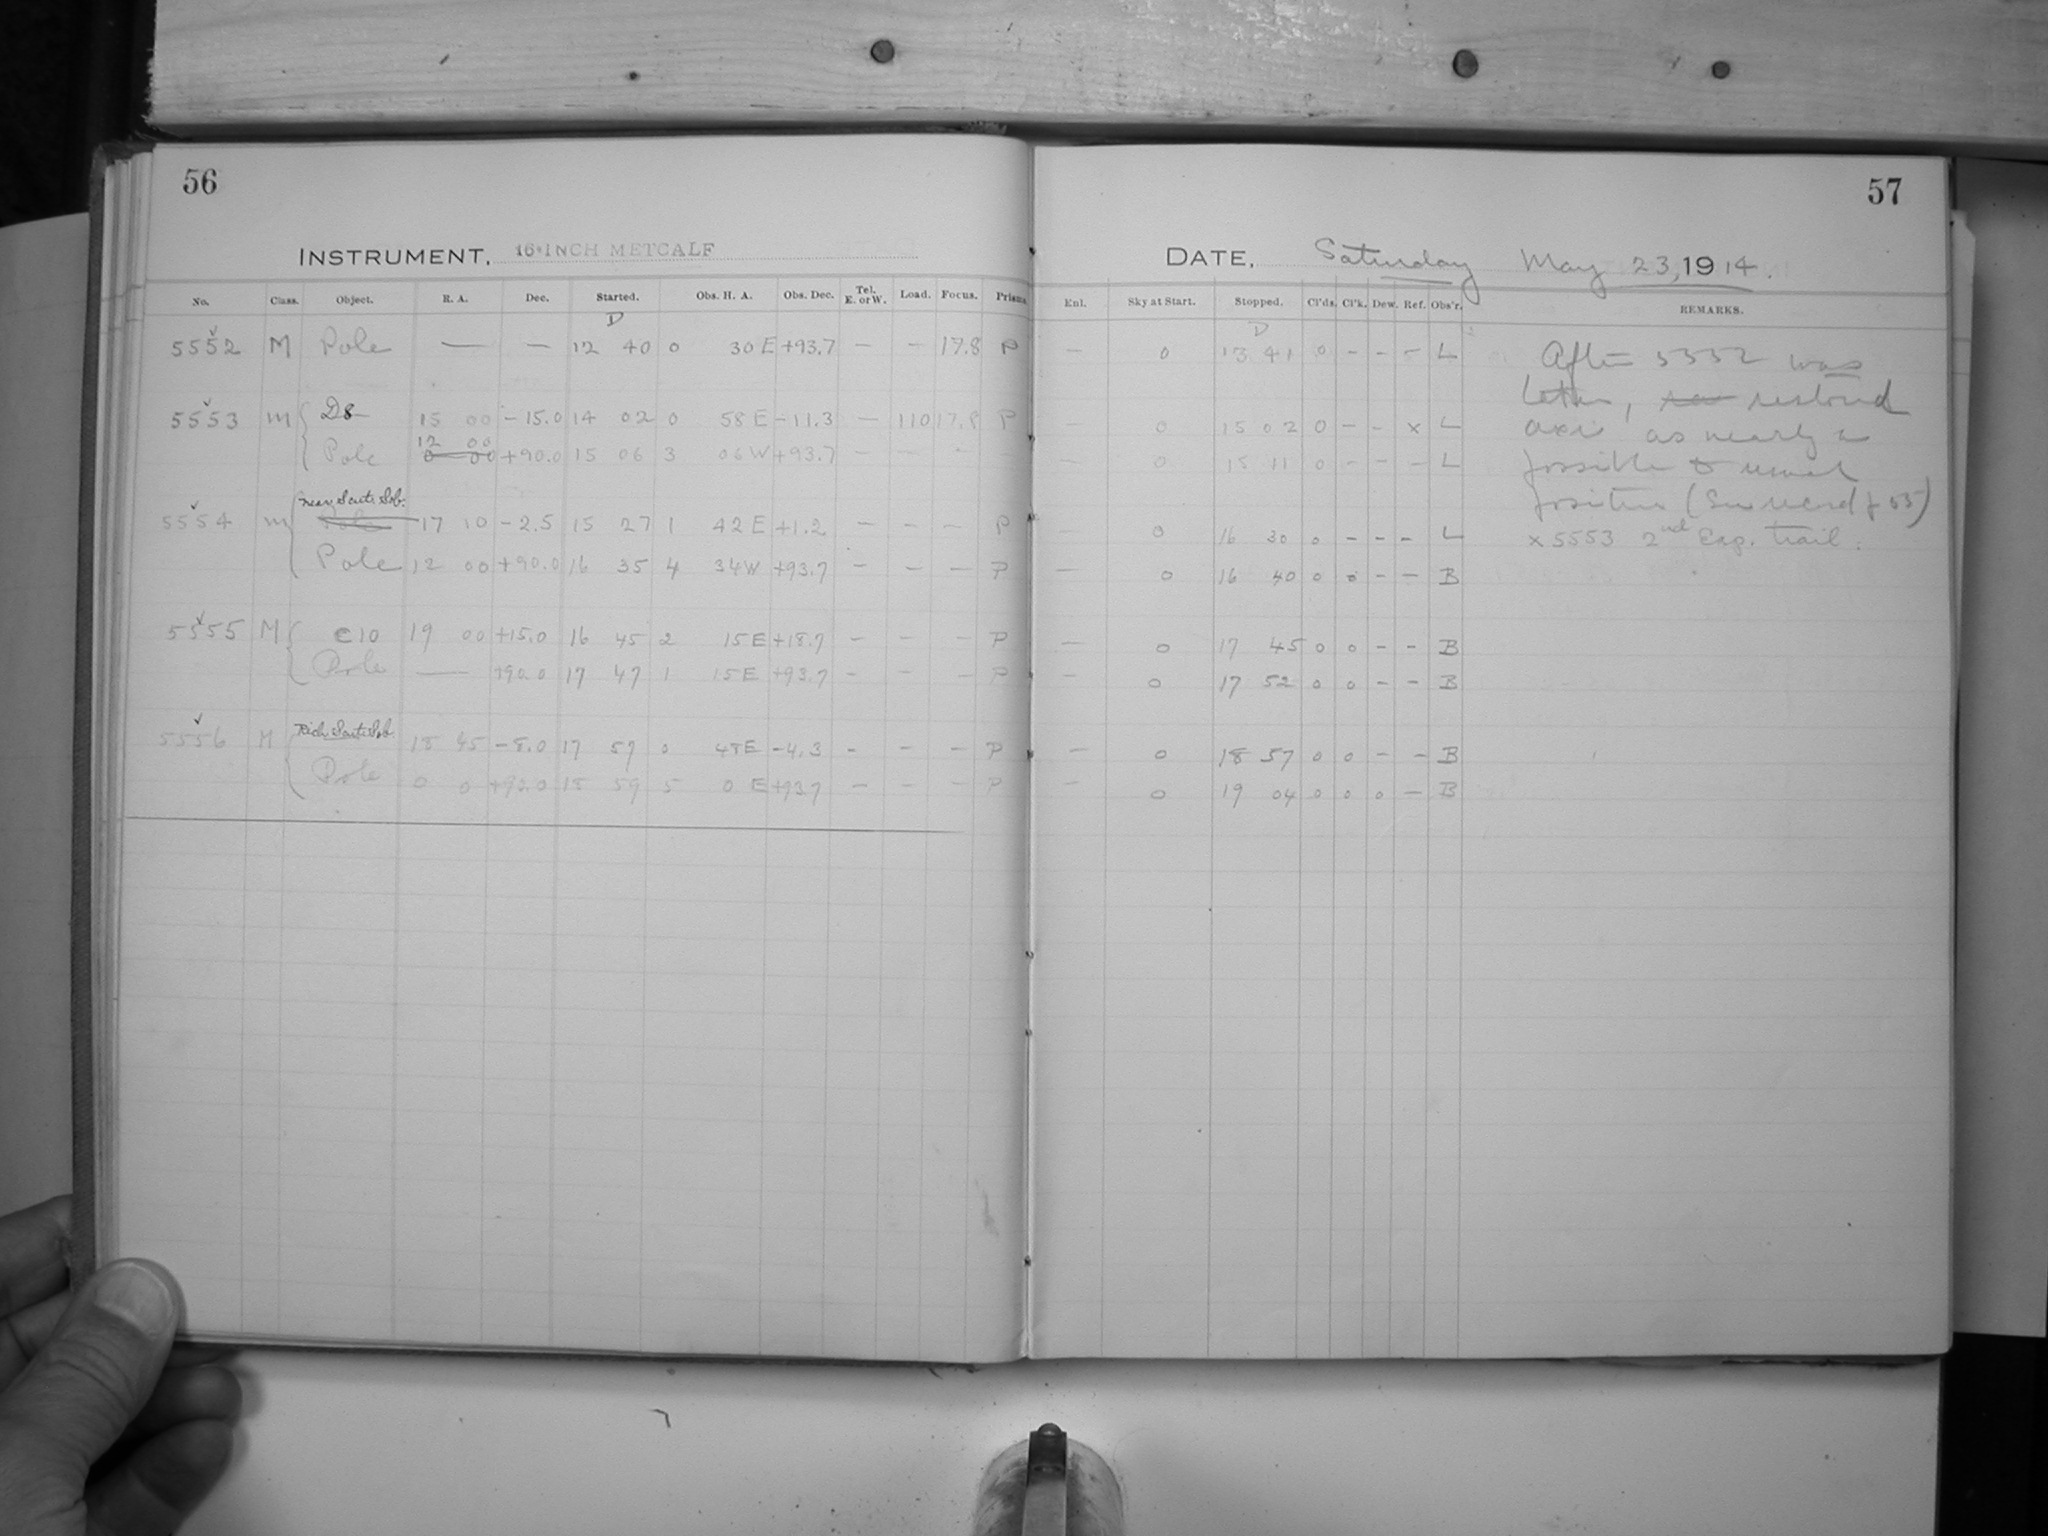 56
57
INSTRUMENT, 16-INCH METCALF
DATE, Saturday May 23, 1914.
No. Class. Object. R. A. Dec. Started. Obs. H. A. Obs. Dec. Tel. E. or W. Load. Focus. Prisms
Enl. Sky at Start. Stopped. Cl'ds. Cl'k. Dew. Ref. Obs'r. REMARKS.
D
D
5552 M Pole — — 12 40 0 30 E +93.7 — — 17.8 P — 0 13 41 0 - - - L
5553 M D8 15 00 -15.0 14 02 0 58 E -11.3 — 110 17.8 P — 0 15 02 0 - - x L
12 00
Pole 0 00 +90.0 15 06 3 06 W +93.7 — — — — 0 15 11 0 - - - L
near Scuti Sob.
5554 M Pole 17 10 -2.5 15 27 1 42 E +1.2 — — — P 0 16 30 0 - - - L
Pole 12 00 +90.0 16 35 4 34 W +93.7 — — — P — 0 16 40 0 0 - - B
5555 M C10 19 00 +15.0 16 45 2 15 E +18.7 - - - P — 0 17 45 0 0 - - B
Pole — +90.0 17 47 1 15 E +93.7 - - - P - 0 17 52 0 0 - - B
5556 M Rich Scuti Sob. 18 45 -8.0 17 57 0 48 E -4.3 - - - P — 0 18 57 0 0 - - B
Pole 0 0 +90.0 18 59 5 0 E +93.7 - - - P — 0 19 04 0 0 0 - B
After 5552 was
restored
axis as nearly as
possible to usual
position (See record p 55)
x 5553 2nd Exp. trail.